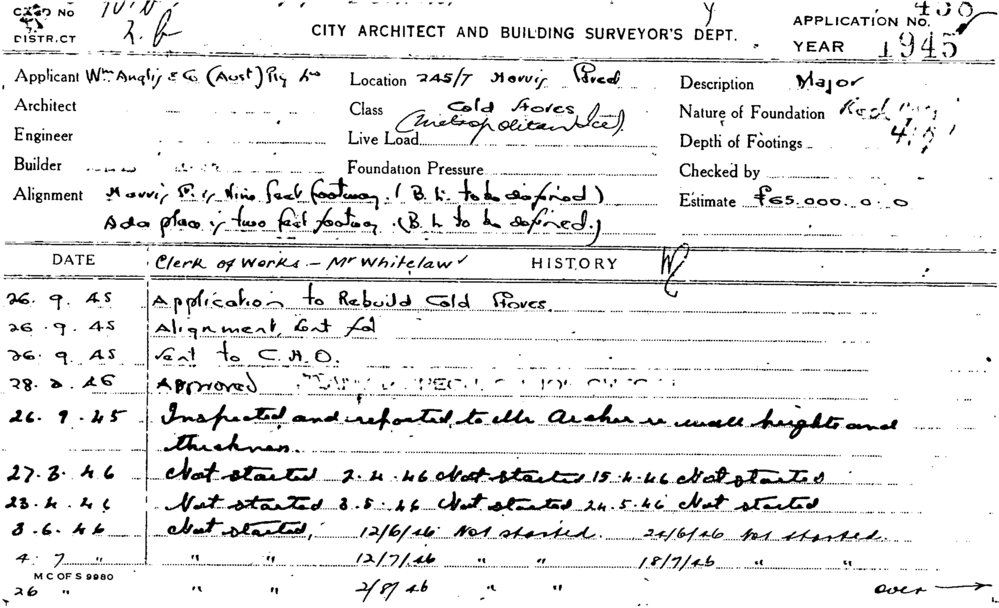 CARD NO
DISTRICT
CITY ARCHITECT AND BUILDING SURVEYOR'S DEPT.
APPLICATION NO. 430
YEAR 1945
Applicant Wm Angliss & Co (Aust) Pty Ltd Location 245/7 Description Major
Architect Class Cold Stores Nature of Foundation Red
Engineer (Metropolitan Ice) Depth of Footings
Live Load
Builder Foundation Pressure Checked by
Alignment is Nine feet footway. (B. L. to be defined) Estimate £65.000. 0. 0
Ada place is two feet footway. (B. L to be defined.)
DATE Clerk of Works - Mr Whitelaw HISTORY
26. 9. 45 Application to Rebuild Cold Stores.
26. 9. 45 Alignment sent for
26. 9. 45 Sent to C.H.O.
Approved
26. 9. 45 Inspected and reported to Mr Archer re wall heights and
thickness.
27. 3. 46 Not started 2. 4. 46 Not started 15. 4. 46 Not started
23. 4. 46 Not started 8. 5. 46 Not started 24. 5. 46 Not started
3. 6. 46 Not started, 12/6/46 Not started. 24/6/46 Not started.
4. 7 " " " 12/7/46 " " 18/7/46 " "
M C OF S 9980
26 " " " 2/8/46 " " over →